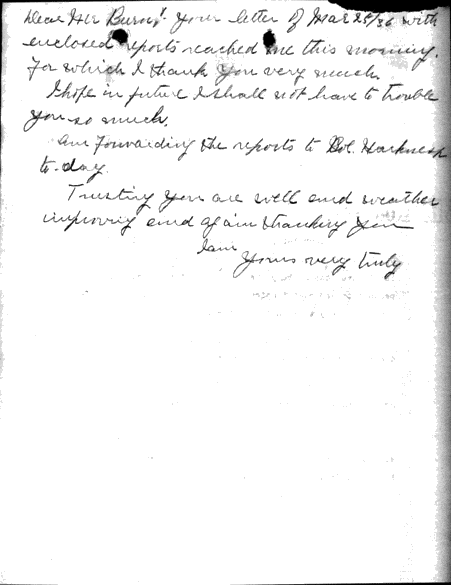 Dear Mr Burns! Your letter of Mar 25/36 with
enclosed reports reached me this morning.
for which I thank you very much.
I hope in future I shall not have to trouble
you so much.
Am forwarding the reports to Col. Harkness
to-day.
Trusting you are well and weather
improving and again thanking you
I am
Yours very truly